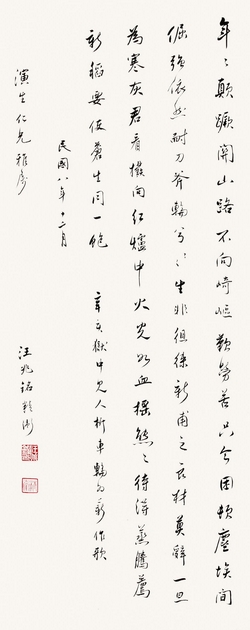 年〻顛蹶關山路不向崎嶇歎勞苦只今困頓塵埃間
倔強依然耐刀斧輪兮〻〻生非徂徠新甫之良材莫辭一旦
為寒灰君看擲向紅爐中火光如血搖熊〻待得蒸騰薦
新稻要使蒼生同一飽 辛亥獄中見人析車輪為薪作歌
民國八年十二月
演生仁兄雅屬 汪兆銘